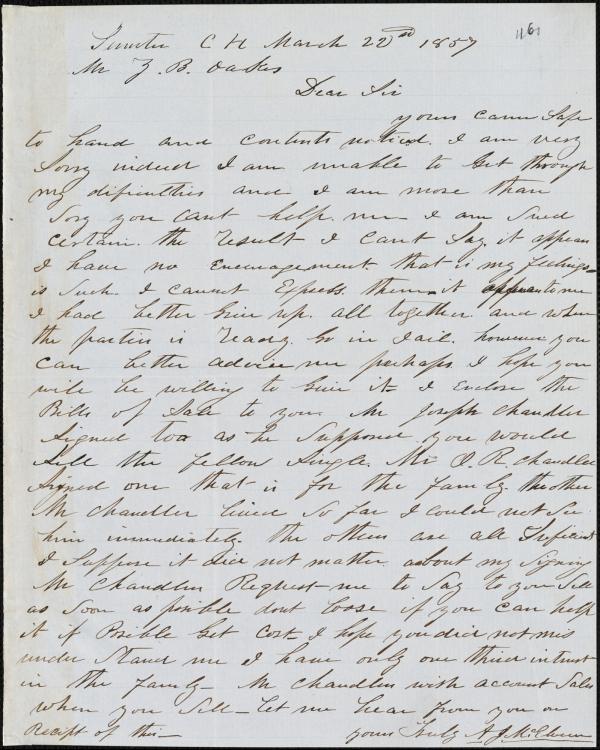 1161
Sumter C H March 22nd 1857
Mr Z. B. Oakes
Dear Sir
yours came Safe
to hand and contents noticed. I am very
Sorry indeed I am unable to Get through
my dificulties and I am more than
Sory you cant help. me I am Sued
certain. the result I cant Say, it appears
I have no Encouragement. that is my feelings
is Such. I cannot Express. them it to me
I had better Give up. all together. and when
the parties is ready. Go in Jail. however you
can better advice me perhaps. I hope you
will be willing to Give it I Enclose the
Bills of Sale to you Mr Joseph Chandler
Signed too as he Supposed you would
Sell the fellow Single. Mr J. R. Chandler
Signed one that is for the family. the other
Mr Chandler lived So far I could not See
him immediately. the others are all Suficient
I Suppose it did not matter about my Signing
Mr Chandler Request me to Say to you Sell
as Soon as posible dont loose if you can help
it if Posible Get Cost I hope you did not mis
under Stand me I have only one third intrust
in the family Mr Chandler wish account Sales
when you Sell Let me hear from you on
Recipt of this yours Truly A J McElveen